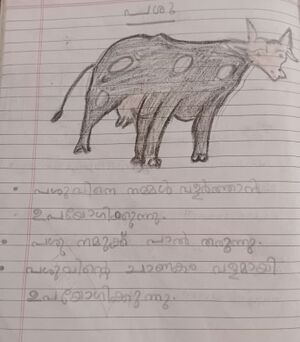 പശു
• പശുവിനെ നമ്മൾ വളർത്താൻ
ഉപയോഗിക്കുന്നു.
• പശു നമുക്ക് പാൽ തരുന്നു.
• പശുവിന്റെ ചാണകം വളമായി
ഉപയോഗിക്കുന്നു.